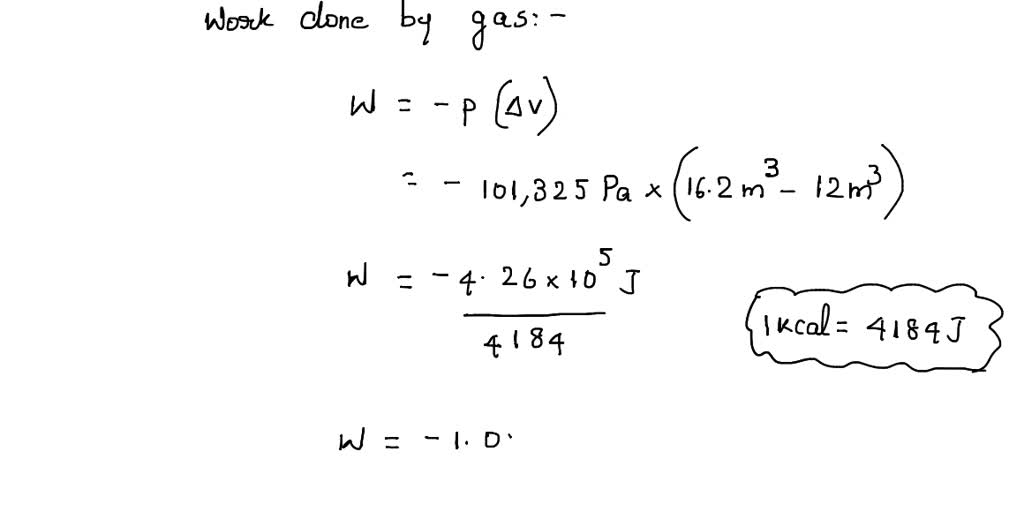 Work done by gas:-
W = - P (ΔV)
= - 101,325 Pa × (16.2 m³ - 12 m³)
W = - 4.26 × 10⁵ J
4184
1 Kcal = 4184 J
W = - 1.0